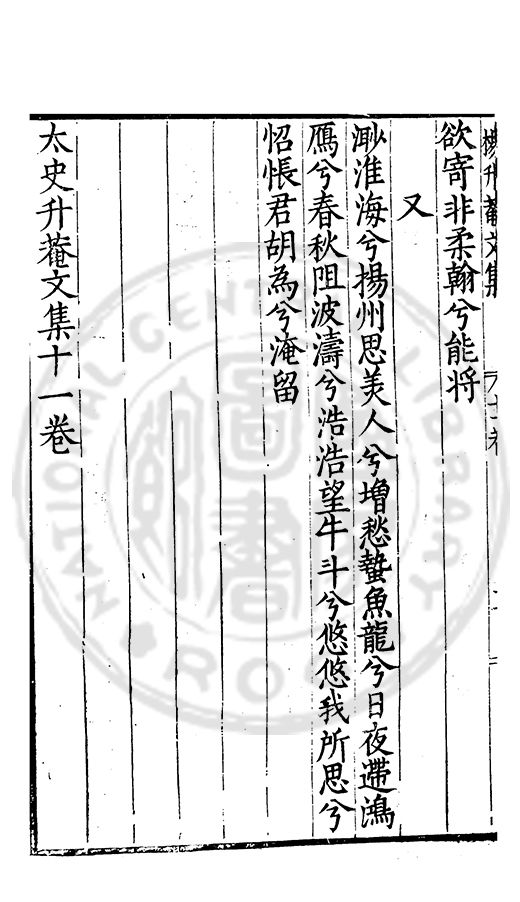 楊升菴文集
欲寄非柔翰兮能将
又
渺淮海兮揚州思美人兮增愁蟄魚龍兮日夜遰鴻
鴈兮春秋阻波濤兮浩浩望牛斗兮悠悠我所思兮
怊悵君胡為兮淹留
太史升菴文集十一卷
NATIONAL CENTRAL LIBRARY
R.O.C.